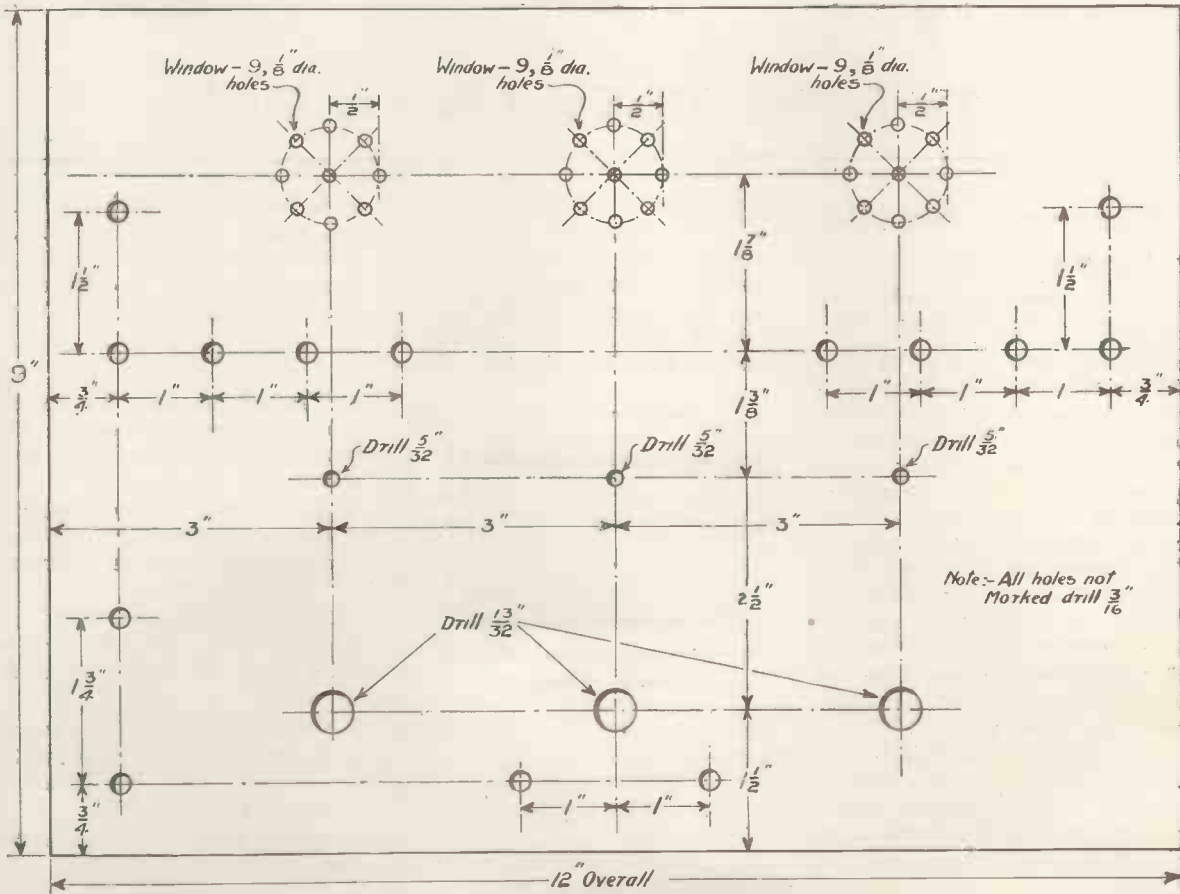 Window - 9, 1/8" dia.
holes
Window - 9, 1/8" dia.
holes
Window - 9, 1/8" dia.
holes
1/2"
1/2"
1/2"
1 1/2"
1 7/8"
1 1/2"
9"
3/4"
1"
1"
1"
1 3/8"
1"
1"
1"
3/4"
Drill 5/32"
Drill 5/32"
Drill 5/32"
3"
3"
3"
Note:- All holes not
Marked drill 3/16"
2 1/2"
Drill 13/32"
1 3/4"
1 1/2"
3/4"
1"
1"
12" Overall